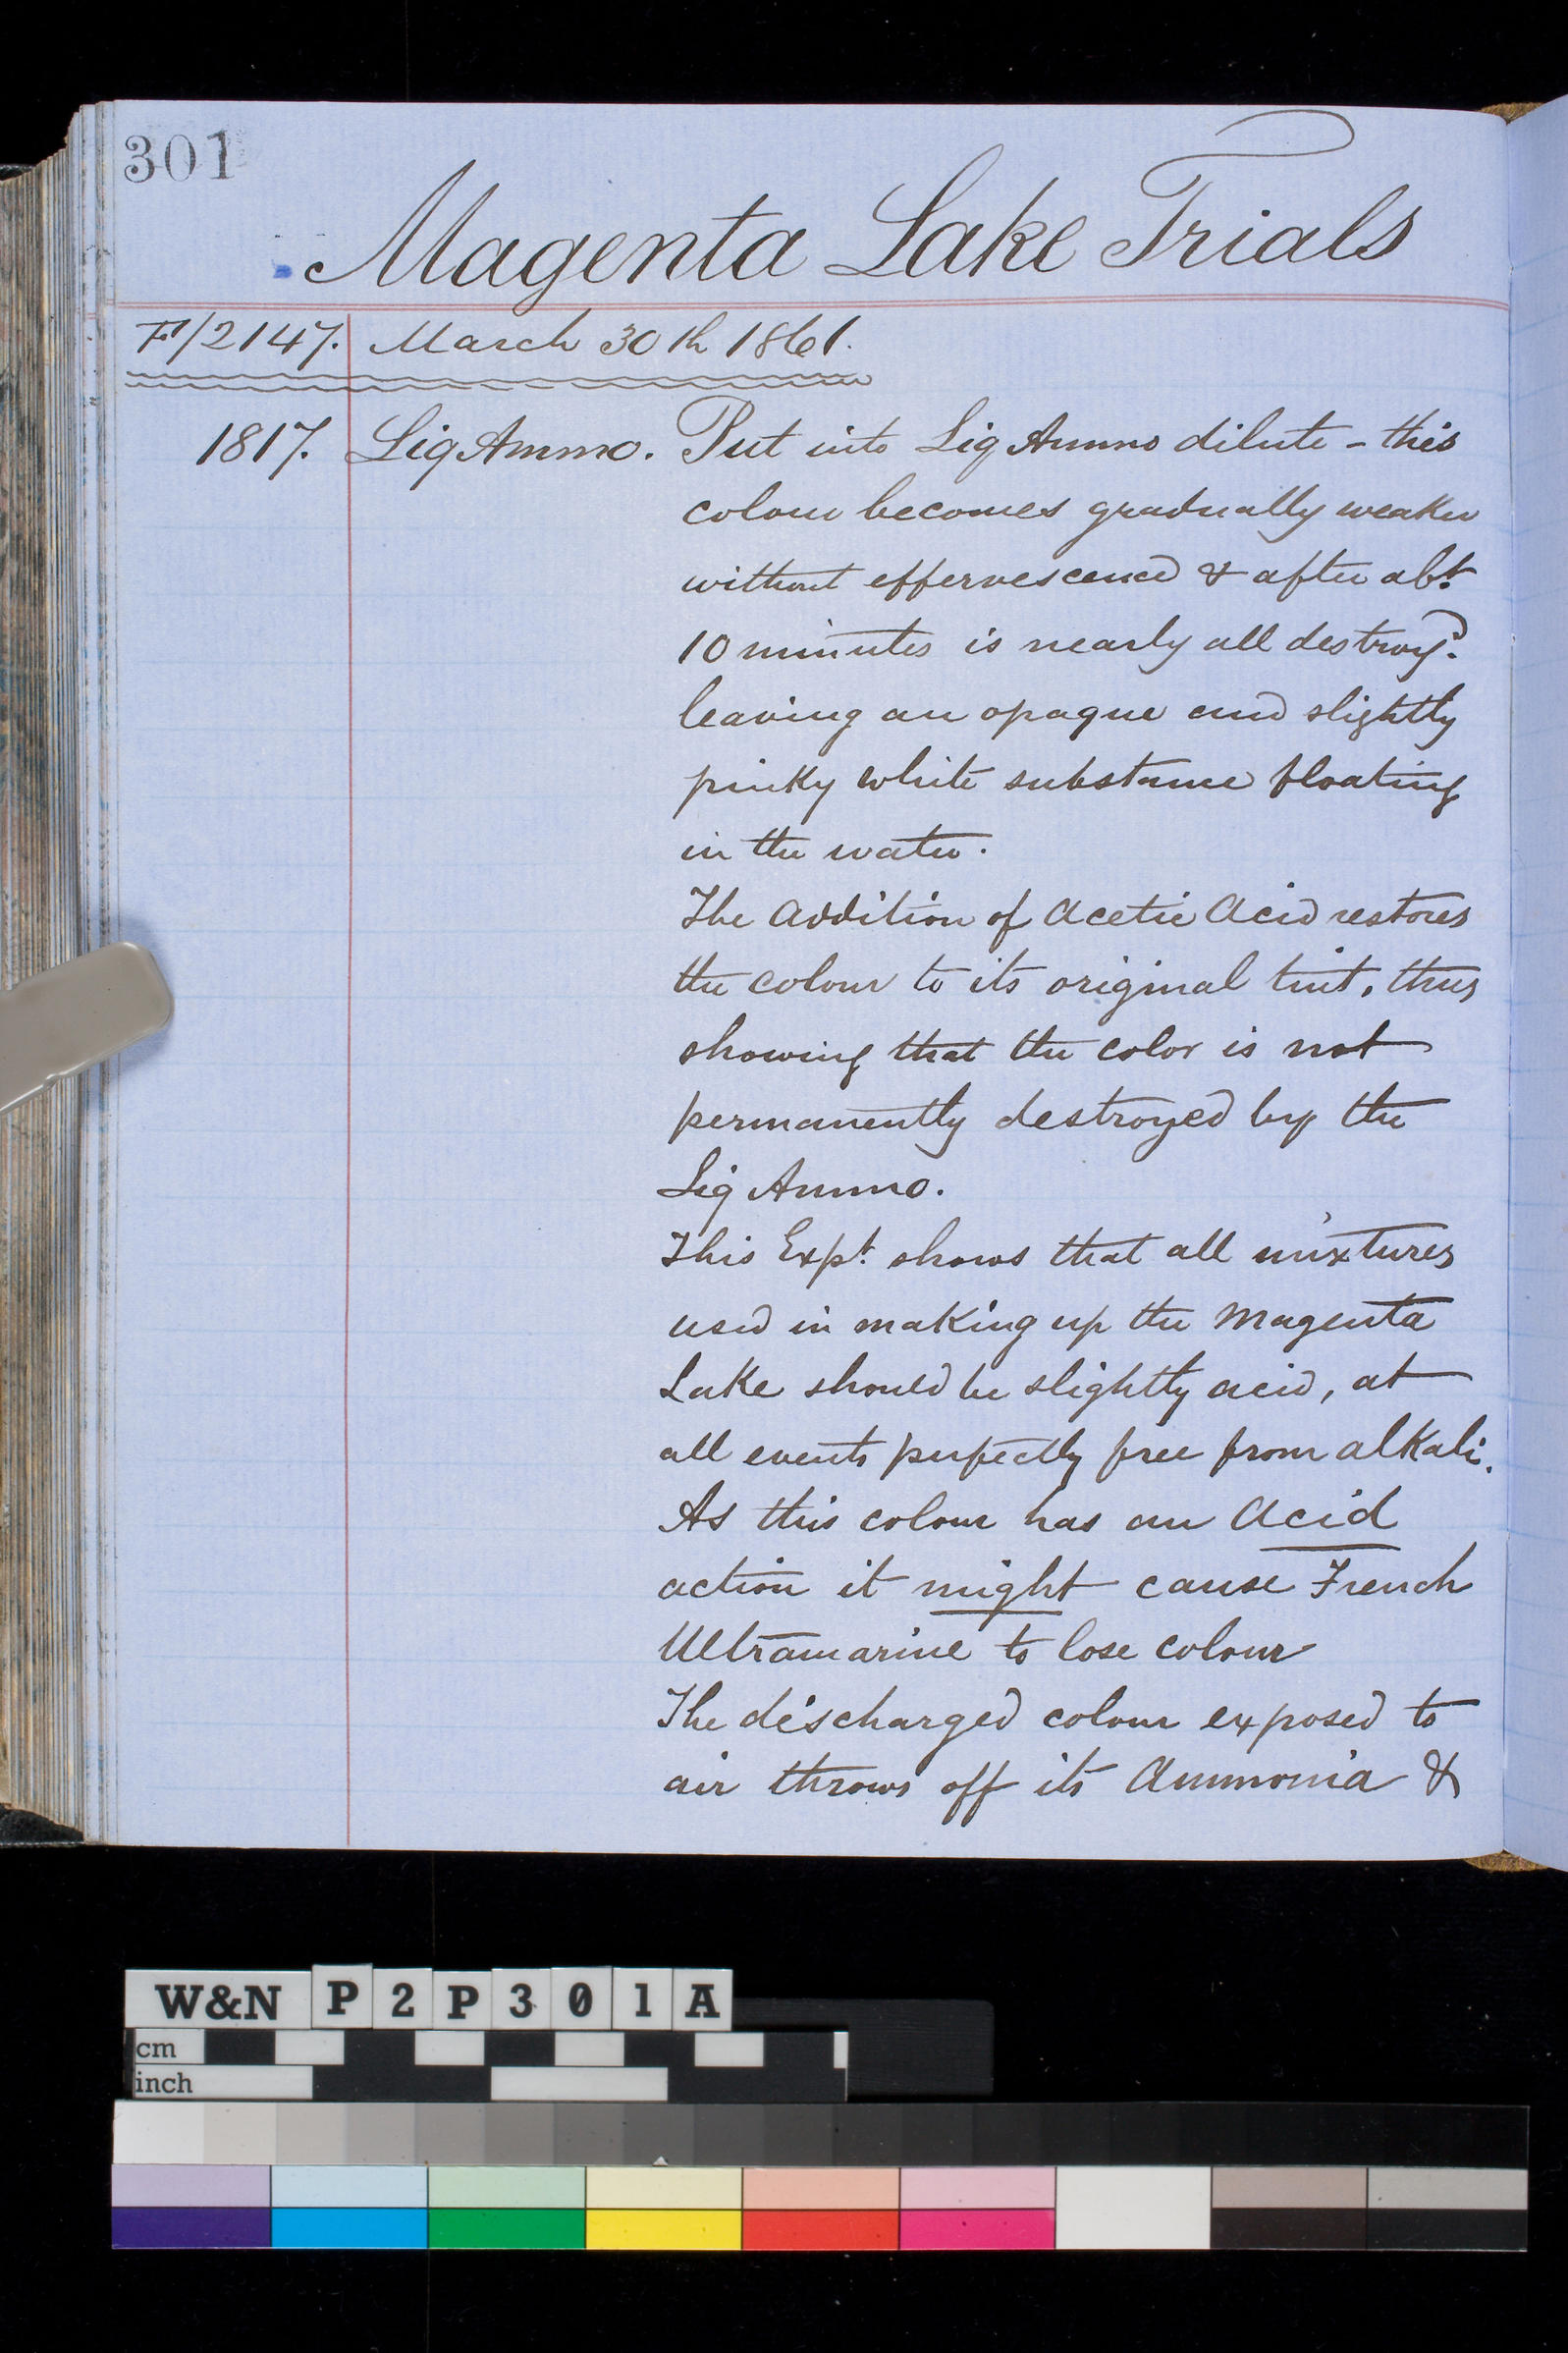 301
Magenta Lake Trials
F/2147. March 30th 1861.
1817. Liq Ammo. Put into Liq Ammo dilute - this
colour becomes gradually weaker
without effervescence & after abt.
10 minutes is nearly all destroyd.
leaving an opaque and slightly
pinky white substance floating
in the water.
The addition of Acetic Acid restores
the colour to its original tint, thus
showing that the color is not
permanently destroyed by the
Liq Ammo.
This Expt. shows that all mixtures
used in making up the Magenta
Lake should be slightly acid, at
all events perfectly free from alkali.
As this colour has an Acid
action it might cause French
Ultramarine to lose colour
The discharged colour exposed to
air throws off its Ammonia &
W&N P2P301A
cm
inch